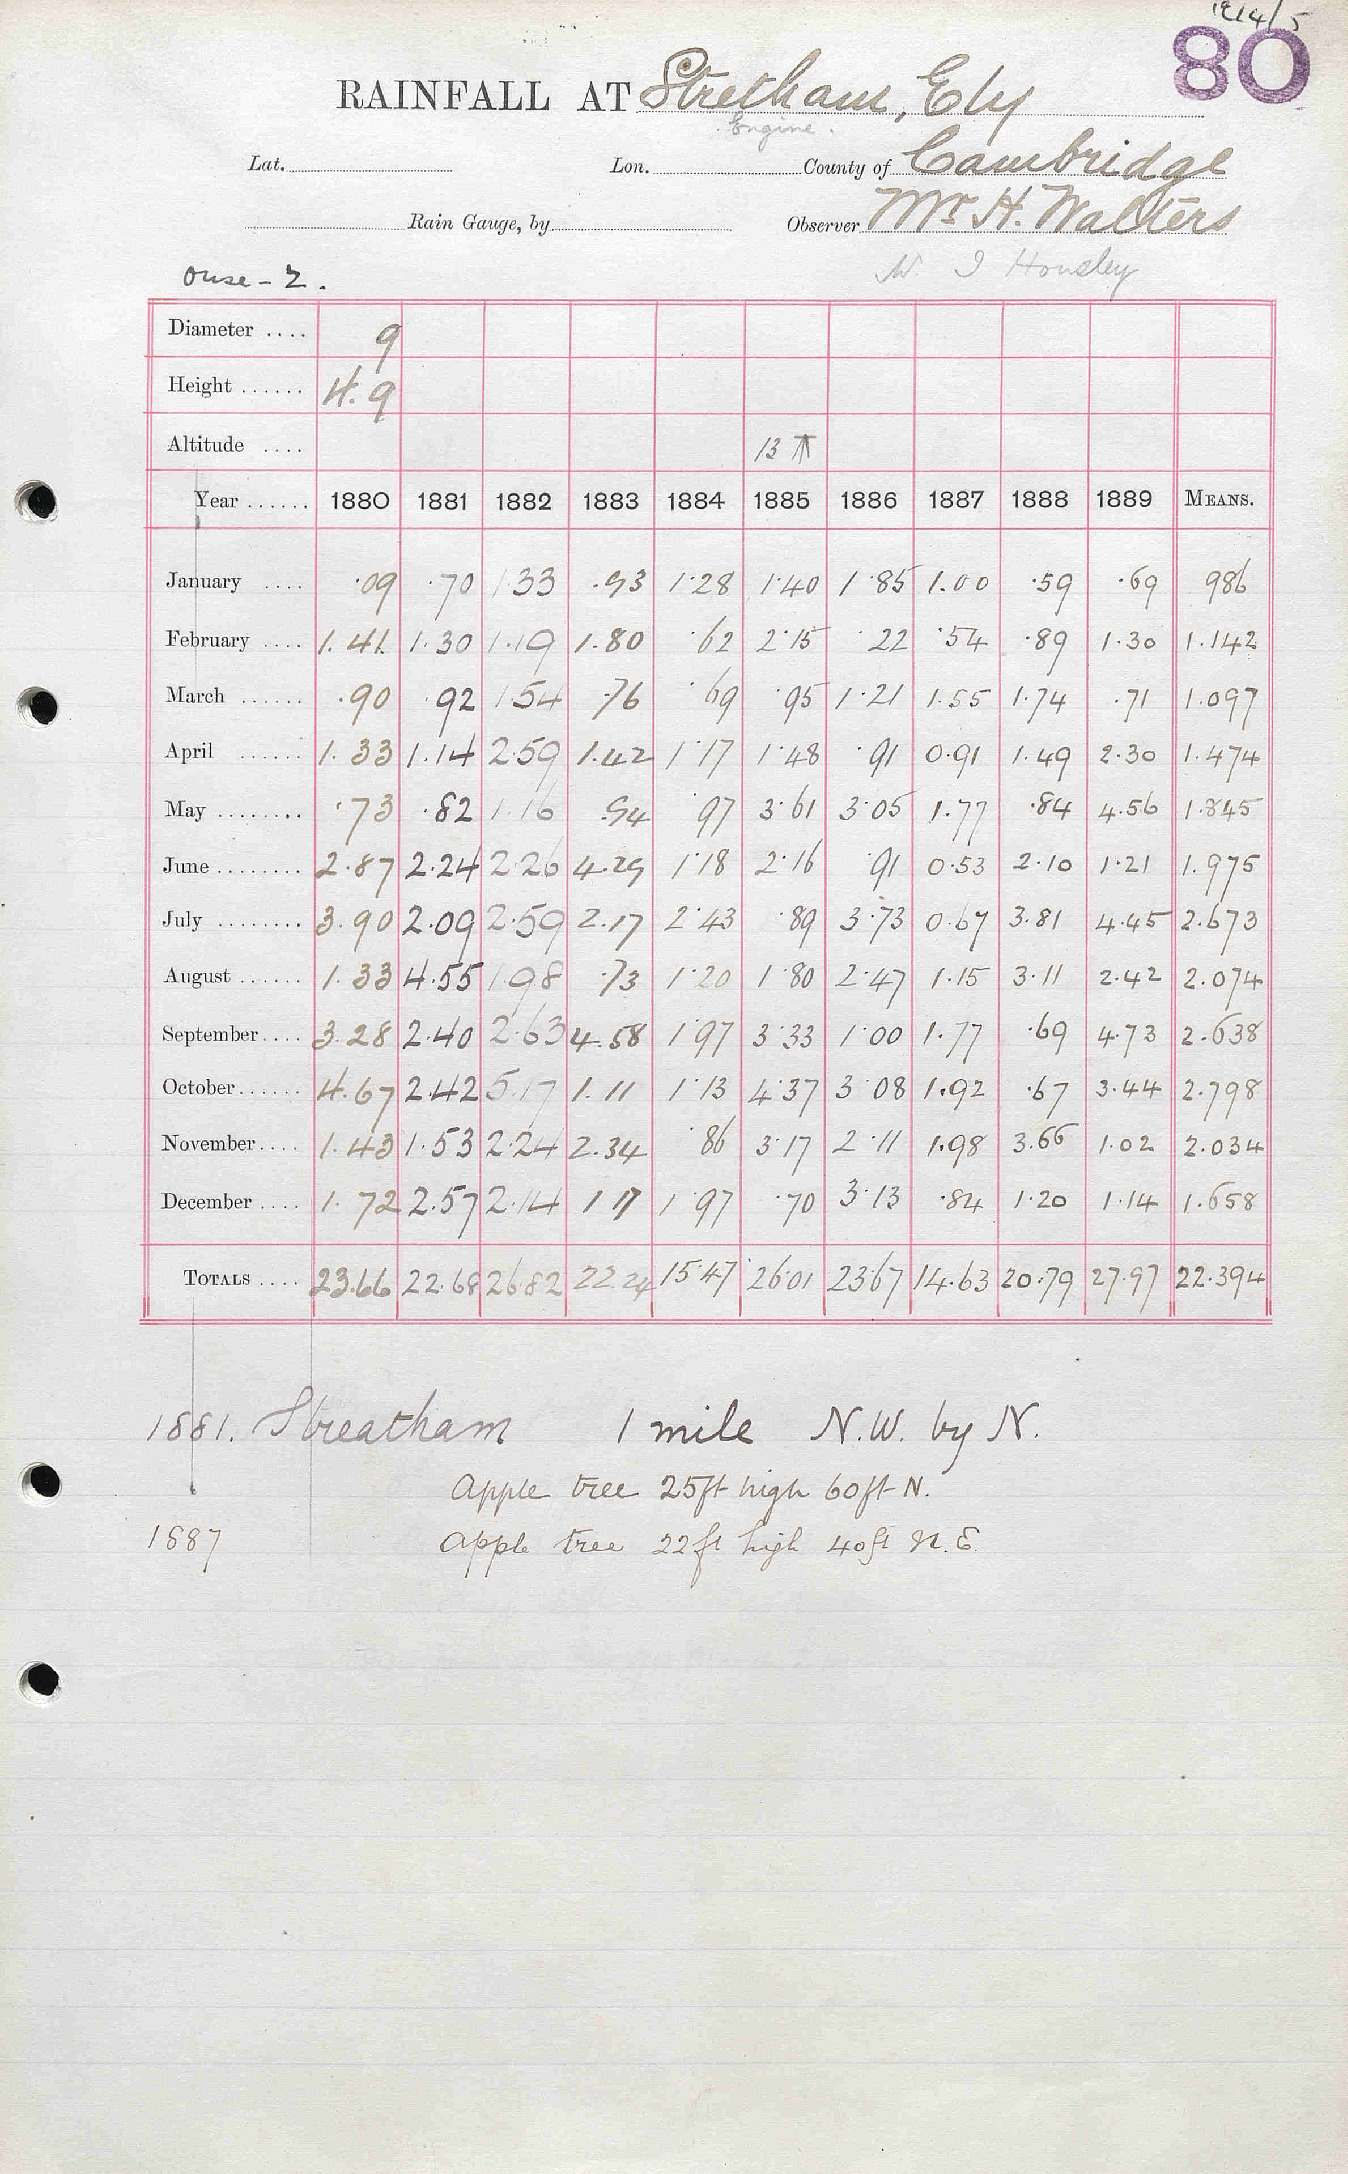 1914/5
80
RAINFALL AT Stretham, Ely
Engine.
Lat. Lon. County of Cambridge
Rain Gauge, by Observer Mr H. Walters
Ouse - 2. Housley
Diameter .... 9
Height ...... 4.9
Altitude .... 13
Year ...... 1880 1881 1882 1883 1884 1885 1886 1887 1888 1889 MEANS.
January .... .09 .70 1.33 .93 1.28 1.40 1.85 1.00 .59 .69 986
February .... 1.41 1.30 1.19 1.80 .62 2.15 .22 .54 .89 1.30 1.142
March ...... .90 .92 1.54 .76 .69 .95 1.21 1.55 1.74 .71 1.097
April ...... 1.33 1.14 2.59 1.42 1.17 1.48 .91 0.91 1.49 2.30 1.474
May ........ .73 .82 1.16 .94 .97 3.61 3.05 1.77 .84 4.56 1.845
June ........ 2.87 2.24 2.26 4.29 1.18 2.16 .91 0.53 2.10 1.21 1.975
July ........ 3.90 2.09 2.59 2.17 2.43 .89 3.73 0.67 3.81 4.45 2.673
August ...... 1.33 4.55 1.98 .73 1.20 1.80 2.47 1.15 3.11 2.42 2.074
September .... 3.28 2.40 2.63 4.58 1.97 3.33 1.00 1.77 .69 4.73 2.638
October ...... 4.67 2.42 5.17 1.11 1.13 4.37 3.08 1.92 .67 3.44 2.798
November .... 1.43 1.53 2.24 2.34 .86 3.17 2.11 1.98 3.66 1.02 2.034
December .... 1.72 2.57 2.14 1.17 1.97 .70 3.13 .84 1.20 1.14 1.658
TOTALS .... 23.66 22.68 26.82 22.24 15.47 26.01 23.67 14.63 20.79 27.97 22.394
1881. Streatham 1 mile N.W. by N.
Apple tree 25ft high 60ft N.
1887 Apple tree 22ft high 40ft N.E.